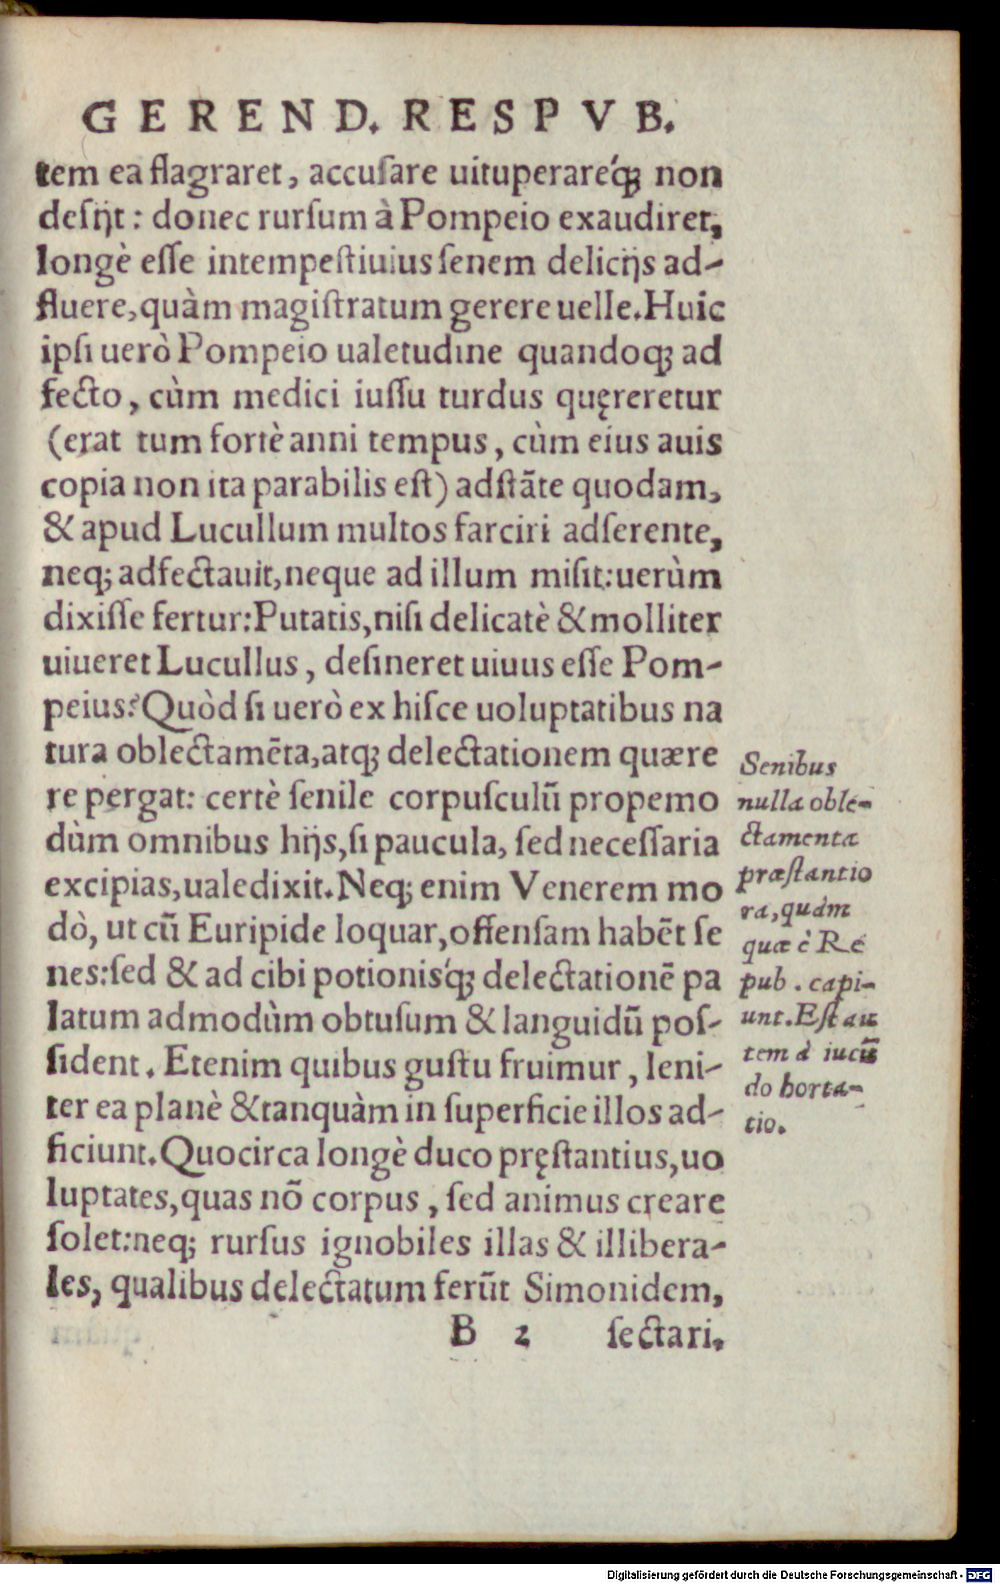 GEREND. RESPVB.
tem ea flagraret, accuſare uituperareq́ꝫ non
deſijt: donec rurſum à Pompeio exaudiret,
longè eſſe intempeſtiuius ſenem delicijs ad-
fluere, quàm magiſtratum gerere uelle. Huic
ipſi uerò Pompeio ualetudine quandoqꝫ ad
fecto, cùm medici iuſſu turdus quęreretur
(erat tum fortè anni tempus, cùm eius auis
copia non ita parabilis eſt) adſtãte quodam,
& apud Lucullum multos farciri adſerente,
neqꝫ adfectauit, neque ad illum miſit: uerùm
dixiſſe fertur: Putatis, niſi delicatè & molliter
uiueret Lucullus, deſineret uiuus eſſe Pom-
peius? Quòd ſi uerò ex hiſce uoluptatibus na
tura oblectamẽta, atqꝫ delectationem quære
re pergat: certè ſenile corpuſculũ propemo
dùm omnibus hijs, ſi paucula, ſed neceſſaria
excipias, ualedixit. Neqꝫ enim Venerem mo
dò, ut cũ Euripide loquar, offenſam habẽt ſe
nes: ſed & ad cibi potionisq́ꝫ delectationẽ pa
latum admodùm obtuſum & languidũ poſ-
ſident. Etenim quibus guſtu fruimur, leni-
ter ea planè & tanquàm in ſuperficie illos ad-
ficiunt. Quocirca longè duco pręſtantius, uo
luptates, quas nõ corpus, ſed animus creare
ſolet: neqꝫ rurſus ignobiles illas & illibera-
les, qualibus delectatum ferũt Simonidem,
B 2 ſectari.
Senibus
nulla oble-
ctamenta
præſtantio
ra, quàm
quæ è Re
pub. capi-
unt. Eſt au
tem à iucũ
do horta-
tio.
Digitalisierung gefördert durch die Deutsche Forschungsgemeinschaft - DFG